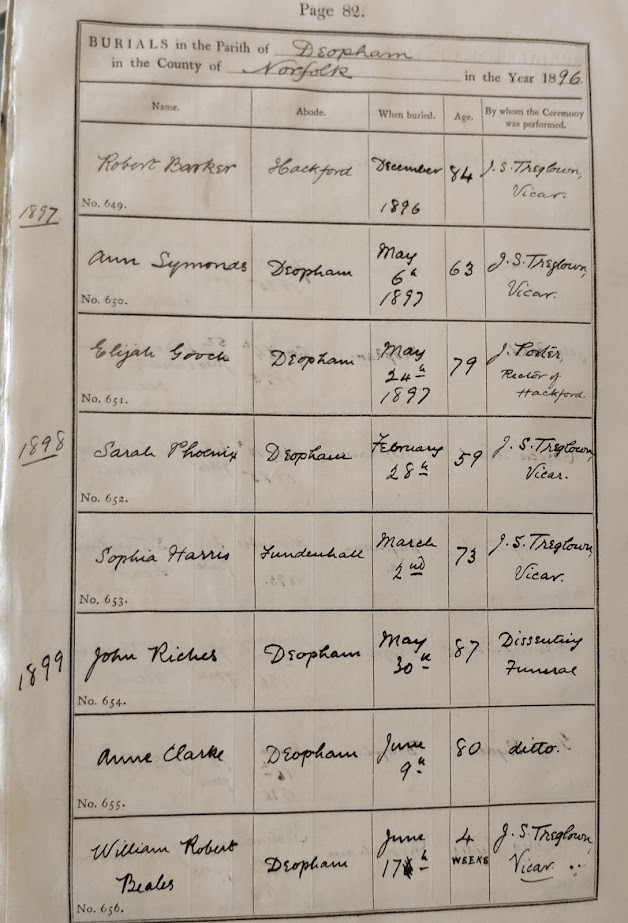 Page 82.
BURIALS in the Parish of Deopham
in the County of Norfolk in the Year 1896.
Name. Abode. When buried. Age. By whom the Ceremony
was performed.
Robert Barker Hackford December 84 J. S. Treglown,
1896 Vicar.
No. 649.
1897
Ann Symonds Deopham May 63 J. S. Treglown,
6th Vicar.
1897
No. 650.
Elijah Gooch Deopham May 79 J. Porter,
24th Rector of
1897 Hackford.
No. 651.
1898
Sarah Phoenix Deopham February 59 J. S. Treglown,
28th Vicar.
No. 652.
Sophia Harris Fundenhall March 73 J. S. Treglown,
2nd Vicar.
No. 653.
1899
John Riches Deopham May 87 Dissenting
30th Funeral
No. 654.
Anne Clarke Deopham June 80 ditto.
9th
No. 655.
William Robert Deopham June 4 J. S. Treglown,
Beales 17th WEEKS Vicar.
No. 656.